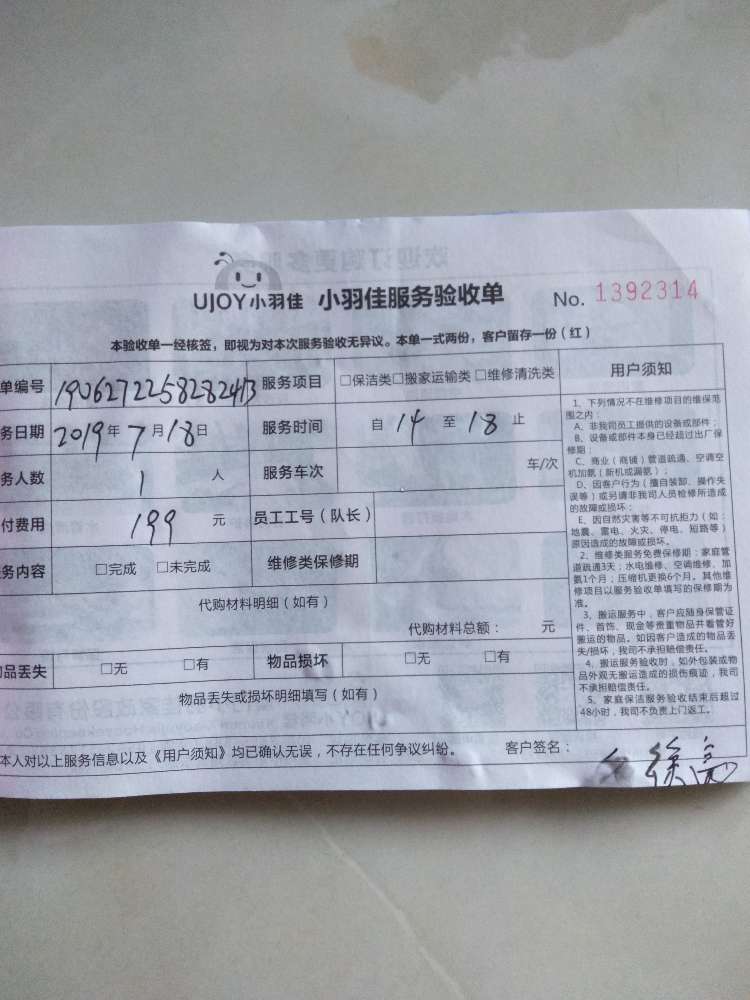 UJOY小羽佳 小羽佳服务验收单 No. 1392314
本验收单一经核签，即视为对本次服务验收无异议。本单一式两份，客户留存一份（红）
单编号 服务项目 □保洁类□搬家运输类 □维修清洗类
务日期 2019年7月18日 服务时间 自 14 至 18 止
务人数 1 人 服务车次 车/次
付费用 199 元 员工工号（队长）
务内容 □完成 □未完成 维修类保修期
代购材料明细（如有）
代购材料总额： 元
品丢失 □无 □有 物品损坏 □无 □有
物品丢失或损坏明细填写（如有）
本人对以上服务信息以及《用户须知》均已确认无误，不存在任何争议纠纷。 客户签名：
用户须知
1、下列情况不在维修项目的维保范
围之内：
A、非我司员工提供的设备或部件；
B、设备或部件本身已经超过出厂保
修期；
C、商业（商铺）管道疏通、空调空
机加氨（新机或漏氨）；
D、因客户行为（擅自装卸、操作失
误等）或另请非我司人员检修所造成
的故障或损坏；
E、因自然灾害等不可抗拒力（如：
地震、雷电、火灾、停电、短路等）
原因造成的故障或损坏。
2、维修类服务免费保修期：家庭管
道疏通3天；水电维修、空调维修、加
氨1个月；压缩机更换6个月。其他维
修项目以服务验收单填写的保修期为
准。
3、搬运服务中，客户应随身保管证
件、首饰、现金等贵重物品并看管好
搬运的物品。如因客户造成的物品丢
失/损坏，我司不承担赔偿责任。
4、搬运服务验收时，如外包装或物
品外观无搬运造成的损伤痕迹，我司
不承担赔偿责任。
5、家庭保洁服务验收结束后超过
48小时，我司不负责上门返工。